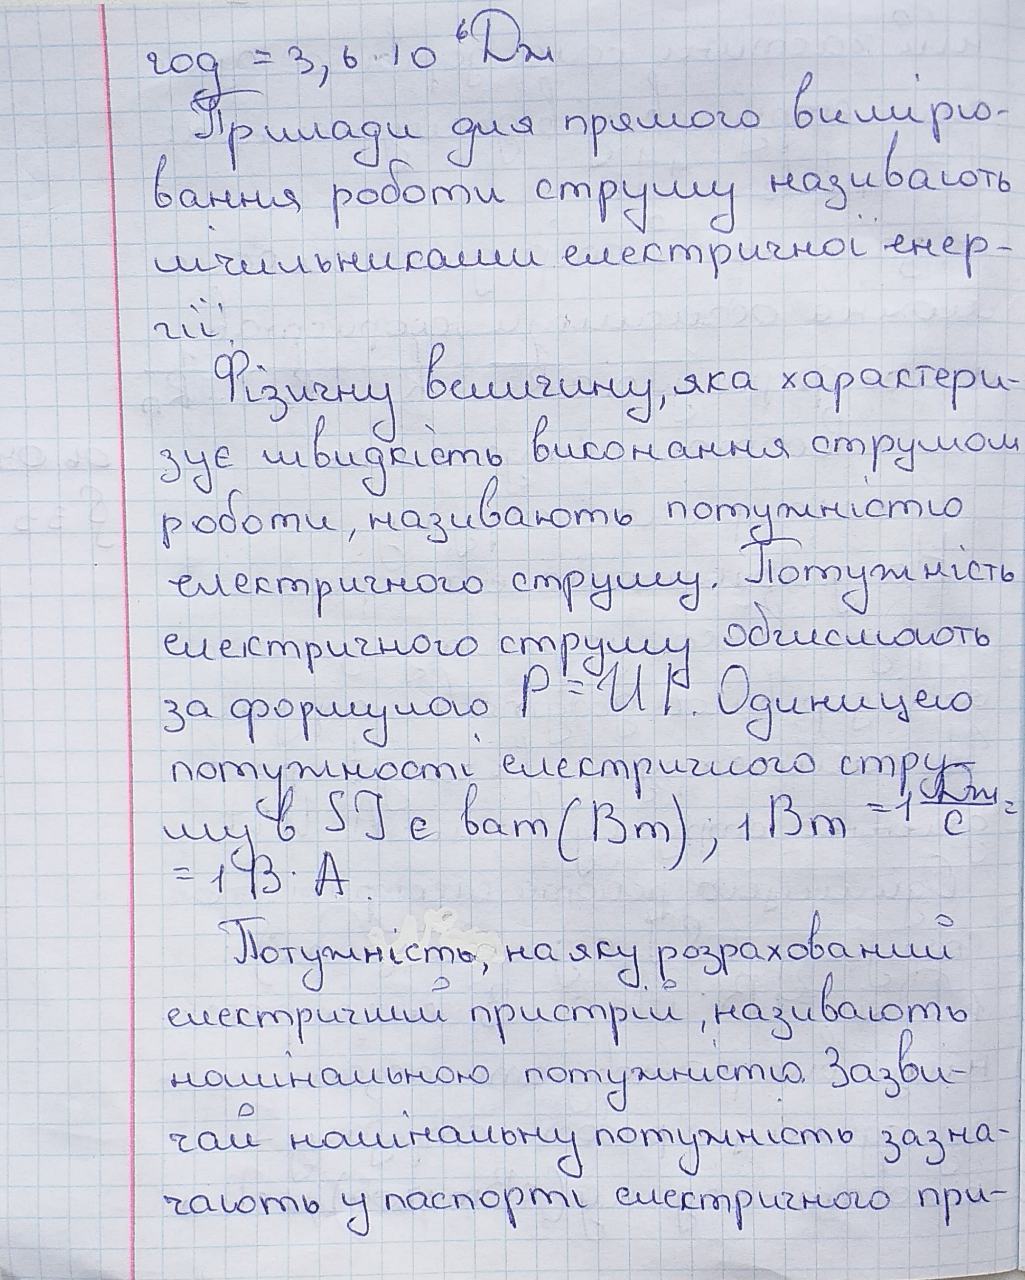 год = 3,6·10⁶ Дж
Прилади для прямого вимірю-
вання роботи струму називають
лічильниками електричної енер-
гії.
Фізичну величину, яка характери-
зує швидкість виконання струмом
роботи, називають потужністю
електричного струму. Потужність
електричного струму обчислюють
за формулою P = UI. Одиницею
потужності електричного стру-
му в SI є ват (Вт); 1 Вт = 1 Дж/с =
= 1 В·А.
Потужність, на яку розрахований
електричний пристрій, називають
номінальною потужністю. Зазви-
чай номінальну потужність зазна-
чають у паспорті електричного при-